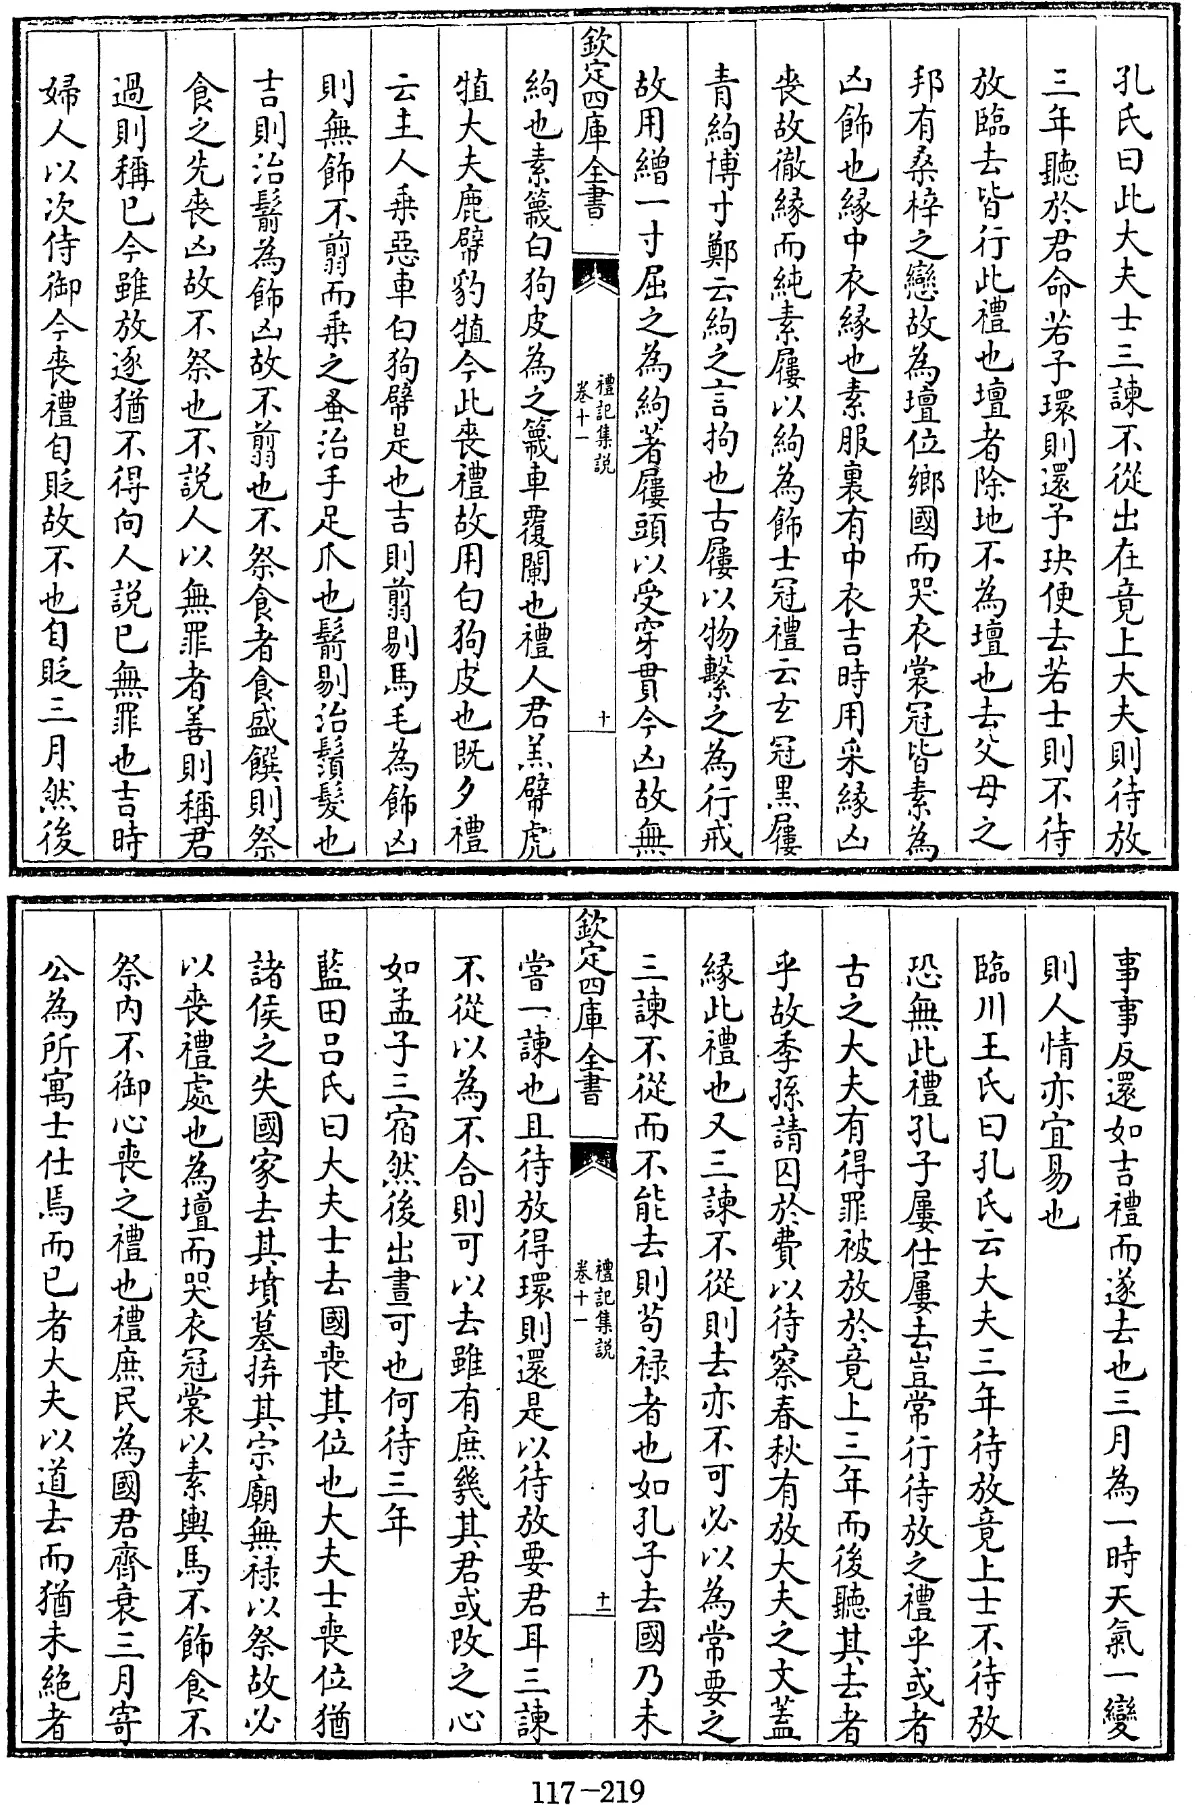 孔氏曰此大夫士三諫不從出在竟上大夫則待放
三年聽於君命若予環則還予玦便去若士則不待
放臨去皆行此禮也壇者除地不為壇也去父母之
邦有桑梓之戀故為壇位鄉國而哭衣裳冠皆素為
凶飾也緣中衣緣也素服裏有中衣吉時用采緣凶
喪故徹緣而純素屨以絇為飾士冠禮云玄冠黑屨
青絇博寸鄭云絇之言拘也古屨以物繫之為行戒
故用繒一寸屈之為絇著屨頭以受穿貫今凶故無
欽定四庫全書
禮記集說
卷十一
十
絇也素簚白狗皮為之簚車覆闌也禮人君羔幦虎
犆大夫鹿幦豹犆今此喪禮故用白狗皮也既夕禮
云主人乗惡車白狗幦是也吉則翦剔馬毛為飾凶
則無飾不翦而乗之蚤治手足爪也鬋剔治鬚髮也
吉則治鬋為飾凶故不翦也不祭食者食盛饌則祭
食之先喪凶故不祭也不說人以無罪者善則稱君
過則稱已今雖放逐猶不得向人說已無罪也吉時
婦人以次侍御今喪禮自貶故不也自貶三月然後
事事反還如吉禮而遂去也三月為一時天氣一變
則人情亦宜易也
臨川王氏曰孔氏云大夫三年待放竟上士不待放
恐無此禮孔子屢仕屢去豈常行待放之禮乎或者
古之大夫有得罪被放於竟上三年而後聽其去者
乎故季孫請囚於費以待察春秋有放大夫之文蓋
緣此禮也又三諫不從則去亦不可必以為常要之
三諫不從而不能去則苟祿者也如孔子去國乃未
欽定四庫全書
禮記集說
卷十一
十一
嘗一諫也且待放得環則還是以待放要君耳三諫
不從以為不合則可以去雖有庶幾其君或改之心
如孟子三宿然後出晝可也何待三年
藍田呂氏曰大夫士去國喪其位也大夫士喪位猶
諸侯之失國家去其墳墓捹其宗廟無祿以祭故必
以喪禮處也為壇而哭衣冠裳以素輿馬不飾食不
祭內不御心喪之禮也禮庶民為國君齊衰三月寄
公為所寓士仕焉而已者大夫以道去而猶未絕者